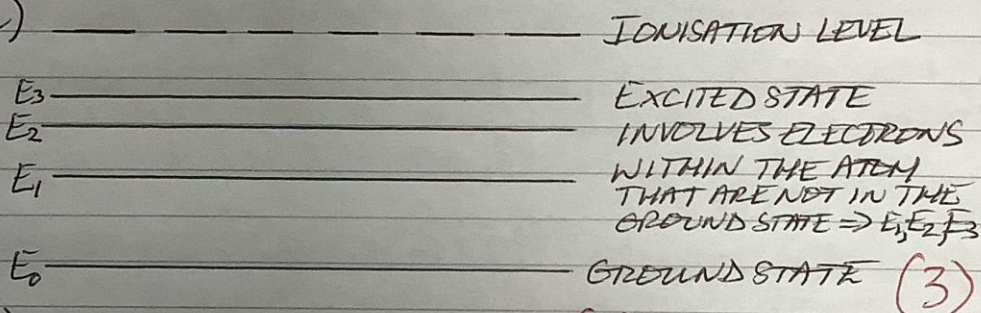 ) IONISATION LEVEL
E3 EXCITED STATE
E2 INVOLVES ELECTRONS
E1 WITHIN THE ATOM
THAT ARE NOT IN THE
GROUND STATE ⇒ E1, E2, E3
E0 GROUND STATE (3)